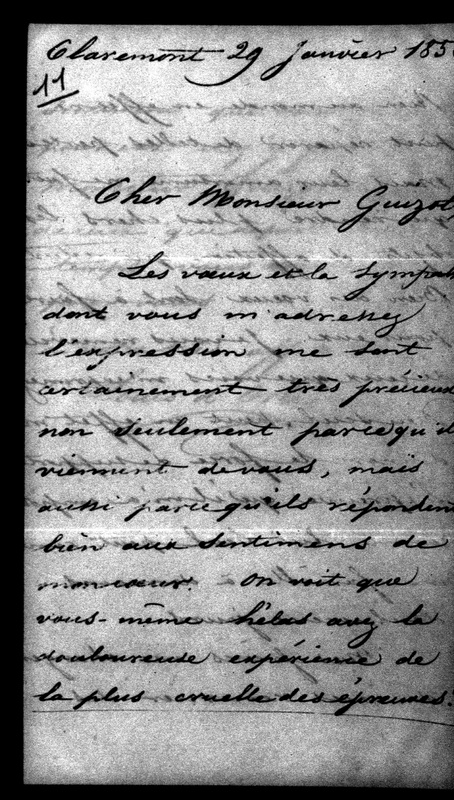 Claremont 29 janvier 185
11
Cher Monsieur Guizot,
Les vœux et la sympath
dont vous m'adressez
l'expression me sont
certainement très précieux
non seulement parcequ'il
viennent de vous, mais
aussi parcequ'ils répondent
bien aux sentimens de
mon cœur. On voit que
vous-même hélas avez la
douloureuse expérience de
la plus cruelle des épreuves.